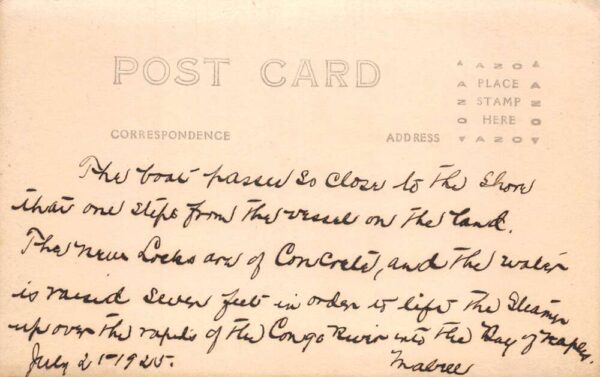 POST CARD
AZO
PLACE
STAMP
HERE
CORRESPONDENCE
ADDRESS
The boat passes so close to the shore
that one steps from the vessel on the land.
The new Locks are of Concrete, and the water
is raised seven feet in order to lift the Steamer
up over the rapids of the Congo River into the Bay of Naples.
July 1925.